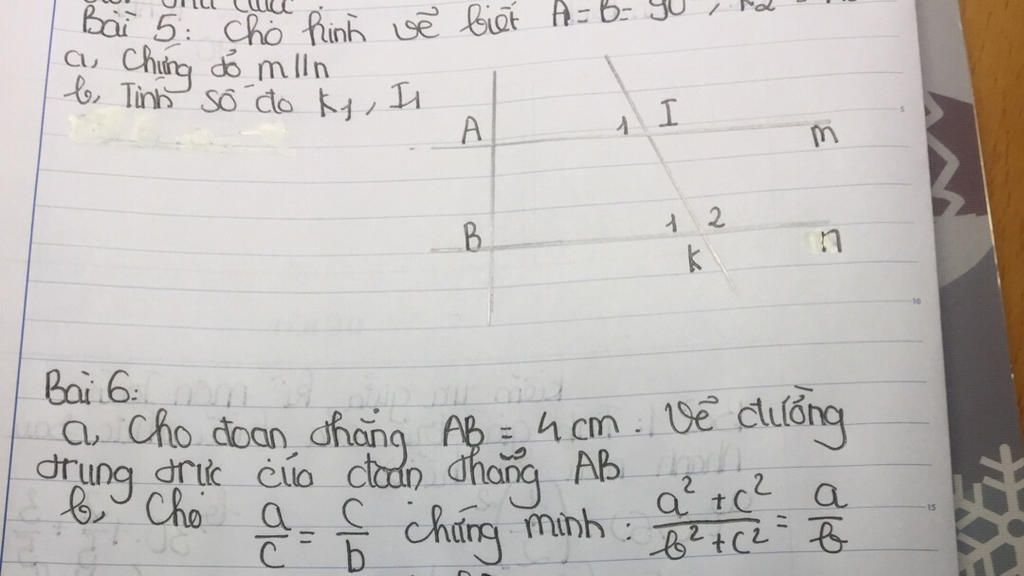 Bài 5: Cho hình vẽ biết A = B = 90°, K2 =
a, Chứng tỏ m // n
b, Tính số đo K1, I1
A 1 I m
B 1 2 n
K
Bài 6:
a, Cho đoạn thẳng AB = 4 cm. Vẽ đường
trung trực của đoạn thẳng AB
b, Cho a/c = c/b chứng minh: a² + c² / b² + c² = a/b
5
10
15